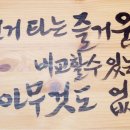 거 타는 즐거움
비교할 수 있는
아무것도 없